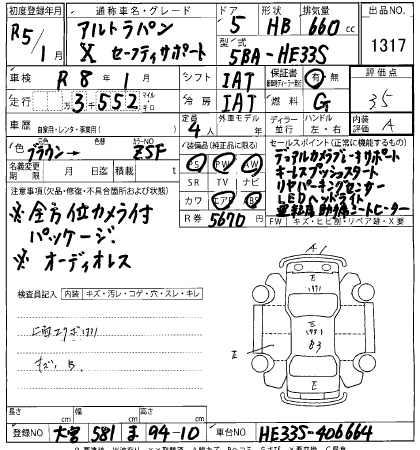 初度登録年月 通称車名・グレード ドア 形状 排気量 出品NO.
R5/1 アルトラパン X セーフティサポート 5 HB 660cc
型式 5BA-HE33S 1317
車検 R 8年 1月 シフト IAT 保証書 有・無 評価点
走行 3千552 マイル キロ 冷房 IAT 燃料 G 35
車歴 自家用・レンタ・事業用( ) 定員 4人 外車モデル年 ディーラー 並行 ハンドル 左・右 内装 A
色 ブラウン→ 色替 カラーNO ZSF 装備品(純正品に限る) セールスポイント(正常に機能するもの)
名義変更期限 月 日迄 積載 t PS PW
デュアルカメラブレーキサポート
キーレスプッシュスタート
リヤパーキングセンサー
LEDヘッドライト
運転席助手席シートヒーター
注意事項(欠品・修復・不具合箇所および状態) SR TV ナビ
※全方位カメラ付 カワ エアB ABS
パッケージ R券 5670 FW キズ・ヒビ割・リペア跡・X要
※オーディオレス
検査員記入 内装 キズ・汚レ・コゲ・穴・スレ・キレ
A1
E
E
E
長さ cm 幅 cm 高さ cm
登録NO 大宮 581 ま 94-10 車台NO HE33S-406664